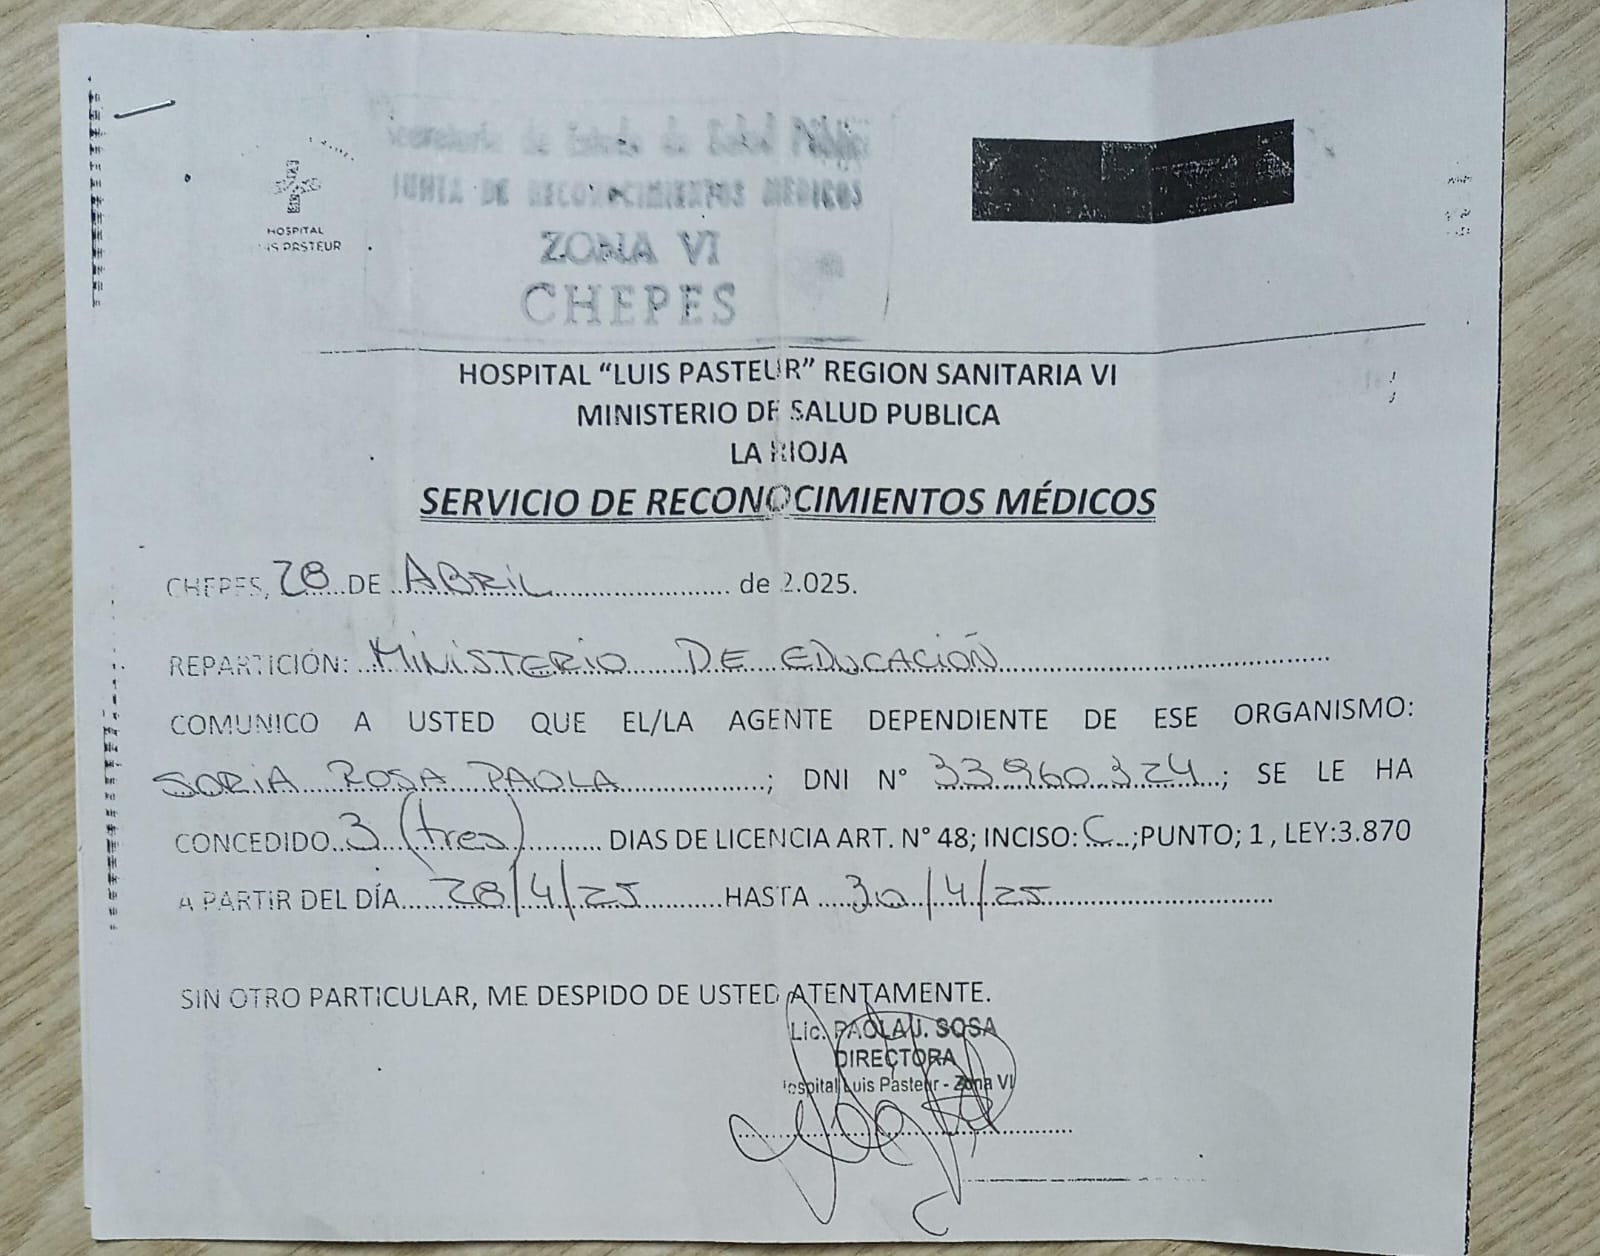 HOSPITAL
PASTEUR
Secretaria de Estado de Salud Pública
JUNTA DE RECONOCIMIENTOS MEDICOS
ZONA VI
CHEPES
HOSPITAL “LUIS PASTEUR” REGION SANITARIA VI
MINISTERIO DE SALUD PUBLICA
LA RIOJA
SERVICIO DE RECONOCIMIENTOS MÉDICOS
CHEPES, 28 DE ABRIL de 2.025.
REPARTICIÓN: MINISTERIO DE EDUCACIÓN
COMUNICO A USTED QUE EL/LA AGENTE DEPENDIENTE DE ESE ORGANISMO:
SORIA ROSA PAOLA; DNI N° 33.960.324; SE LE HA
CONCEDIDO 3 (tres) DIAS DE LICENCIA ART. N° 48; INCISO: C ;PUNTO; 1, LEY:3.870
A PARTIR DEL DÍA 28/4/25 HASTA 30/4/25
SIN OTRO PARTICULAR, ME DESPIDO DE USTED ATENTAMENTE.
Lic. PAOLA J. SOSA
DIRECTORA
Hospital Luis Pasteur - Zona VI